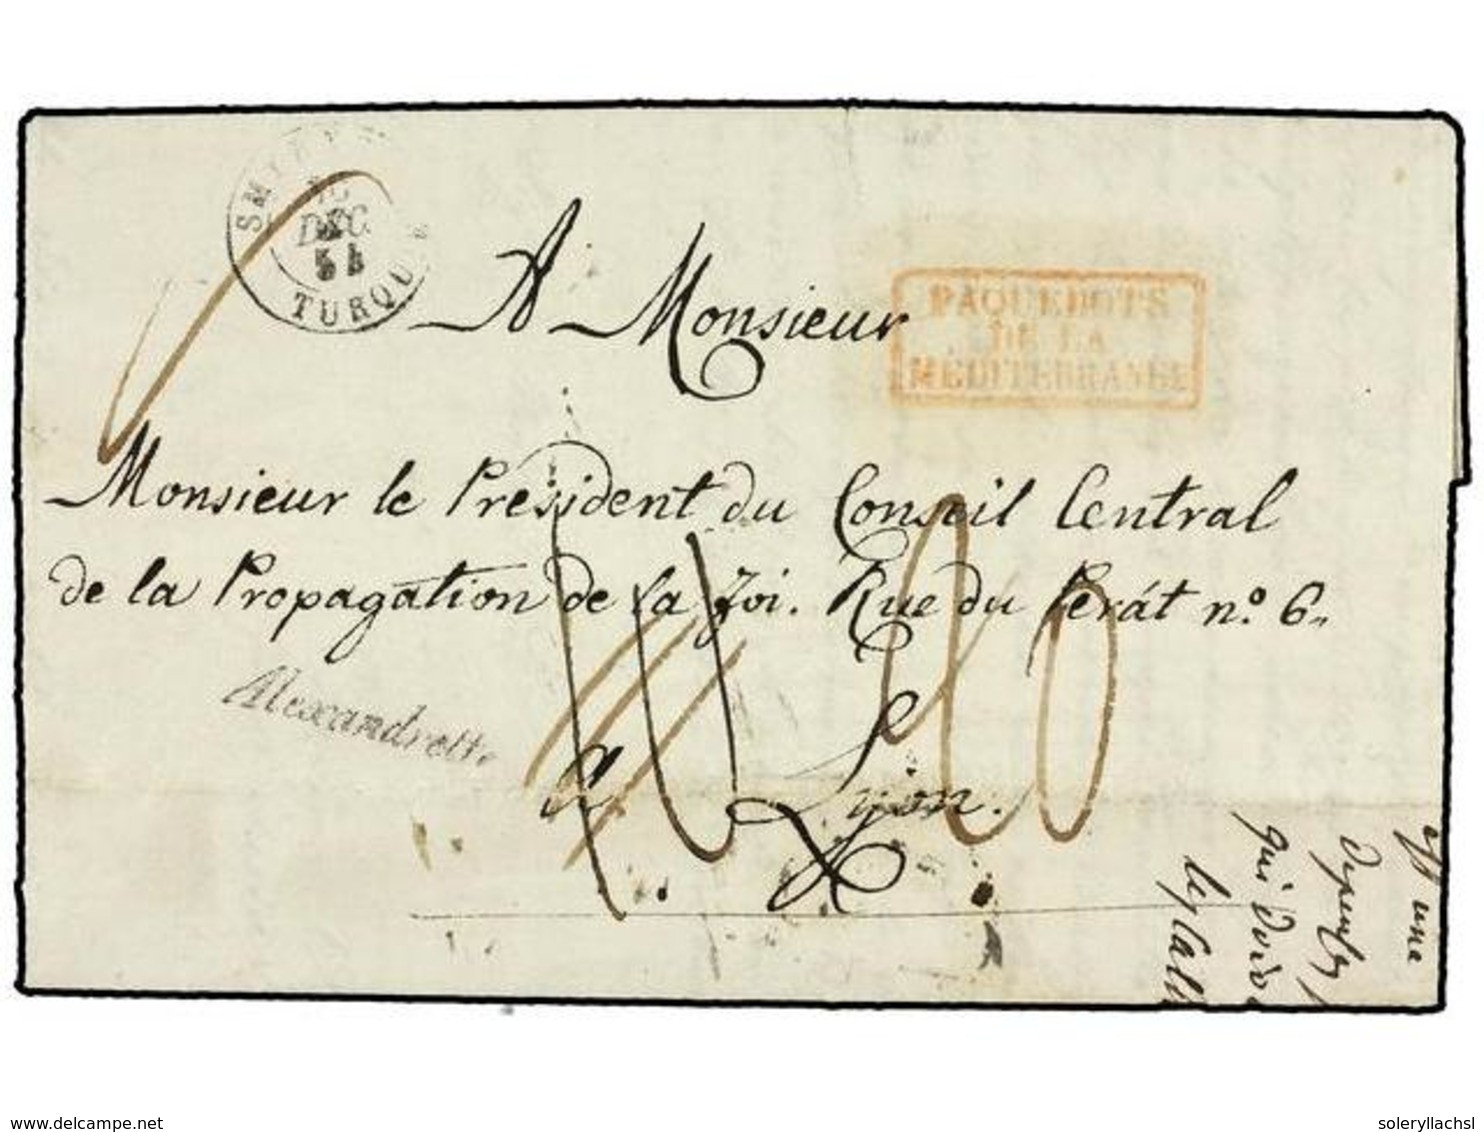 DEC.
54
TURQU
A Monsieur
PAQUEBOTS
DE LA
MEDITERRANEE
Monsieur le Président du Conseil Central
de la Propagation de la foi. Rue du Perát n.º 6.
Alexandrette
a Lyon.
une
qui
delcampe.net
soleryllachsl